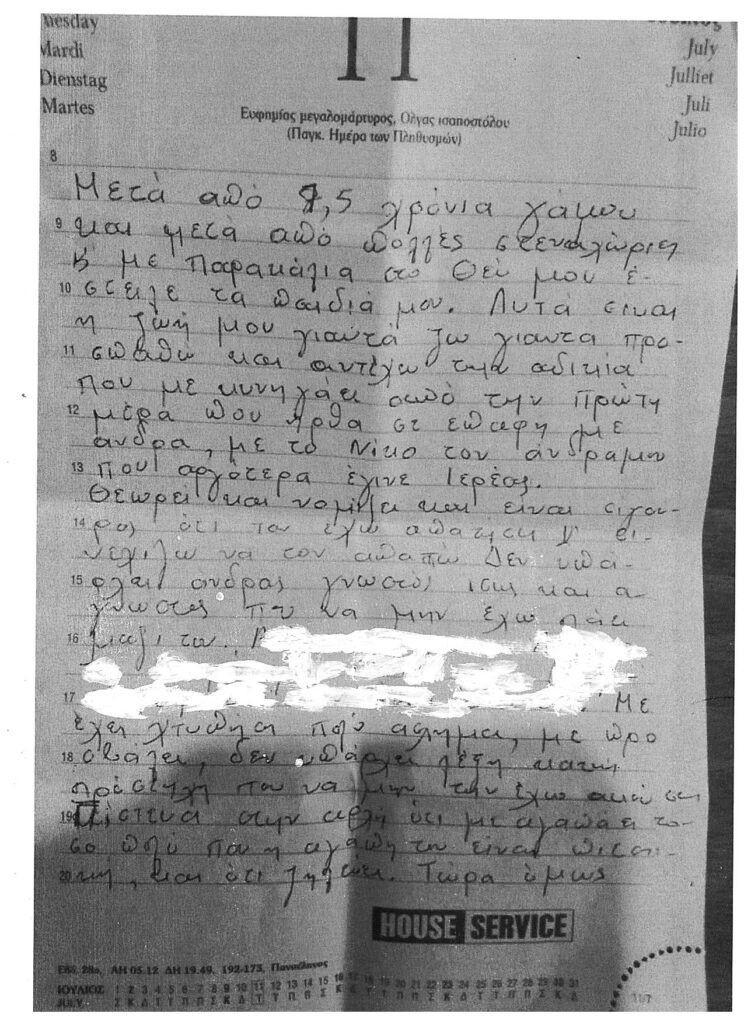 Tuesday
Mardi
Dienstag
Martes
11
July
Julliet
Juli
Julio
Ευφημίας μεγαλομάρτυρος, Όλγας ισαποστόλου
(Παγκ. Ημέρα των Πληθυσμών)
8
Μετά από 7,5 χρόνια γάμου
9 και μετά από πολλές στεναχώριες
κ με παρακάλια στο Θεό μου έ-
10 στειλε τα παιδιά μου. Αυτά είναι
η ζωή μου γιαυτά ζω γιαυτα προ-
11 σπαθώ και αντέχω την αδικία
που με κυνηγάει από την πρώτη
12 μέρα που ήρθα σε επαφή με
άνδρα, με το Νίκο τον άνδραμου
13 που αργότερα έγινε Ιερέας.
Θεωρεί και νομίζει και είναι σιγου-
14 ρος ότι τον έχω απατήσει κ συ-
νεχίζω να τον απατώ Δεν υπά-
15 ρχει άνδρας γνωστός ισως και α-
γνωστος που να μην έχω πάει
16 μαζί του.
17 Με
έχει χτυπήσει πολύ άσχημα, με προ
18 σβάλει, δεν υπάρχει λέξη κακή
πρόστυχη που να μην την έχω ακούσει
19 Πίστευα στην αρχή ότι με αγαπάει το-
σο πολύ που η αγάπη του είναι
20 και ότι ζηλεύει. Τώρα όμως
HOUSE SERVICE
Εβδ. 28η, ΑΗ 05.12 ΔΗ 19.49, 192-173, Πανσέληνος
ΙΟΥΛΙΟΣ 1 2 3 4 5 6 7 8 9 10 11 12 13 14 15 16 17 18 19 20 21 22 23 24 25 26 27 28 29 30 31
JULY Σ Κ Δ Τ Τ Π Π Σ Κ Δ Τ Τ Π Π Σ Κ Δ Τ Τ Π Π Σ Κ Δ Τ Τ Π Π Σ Κ Δ
11/7